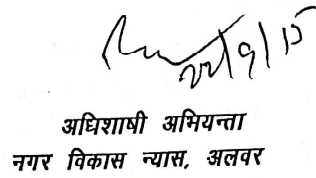 22/9/15
अधिशाषी अभियन्ता
नगर विकास न्यास, अलवर